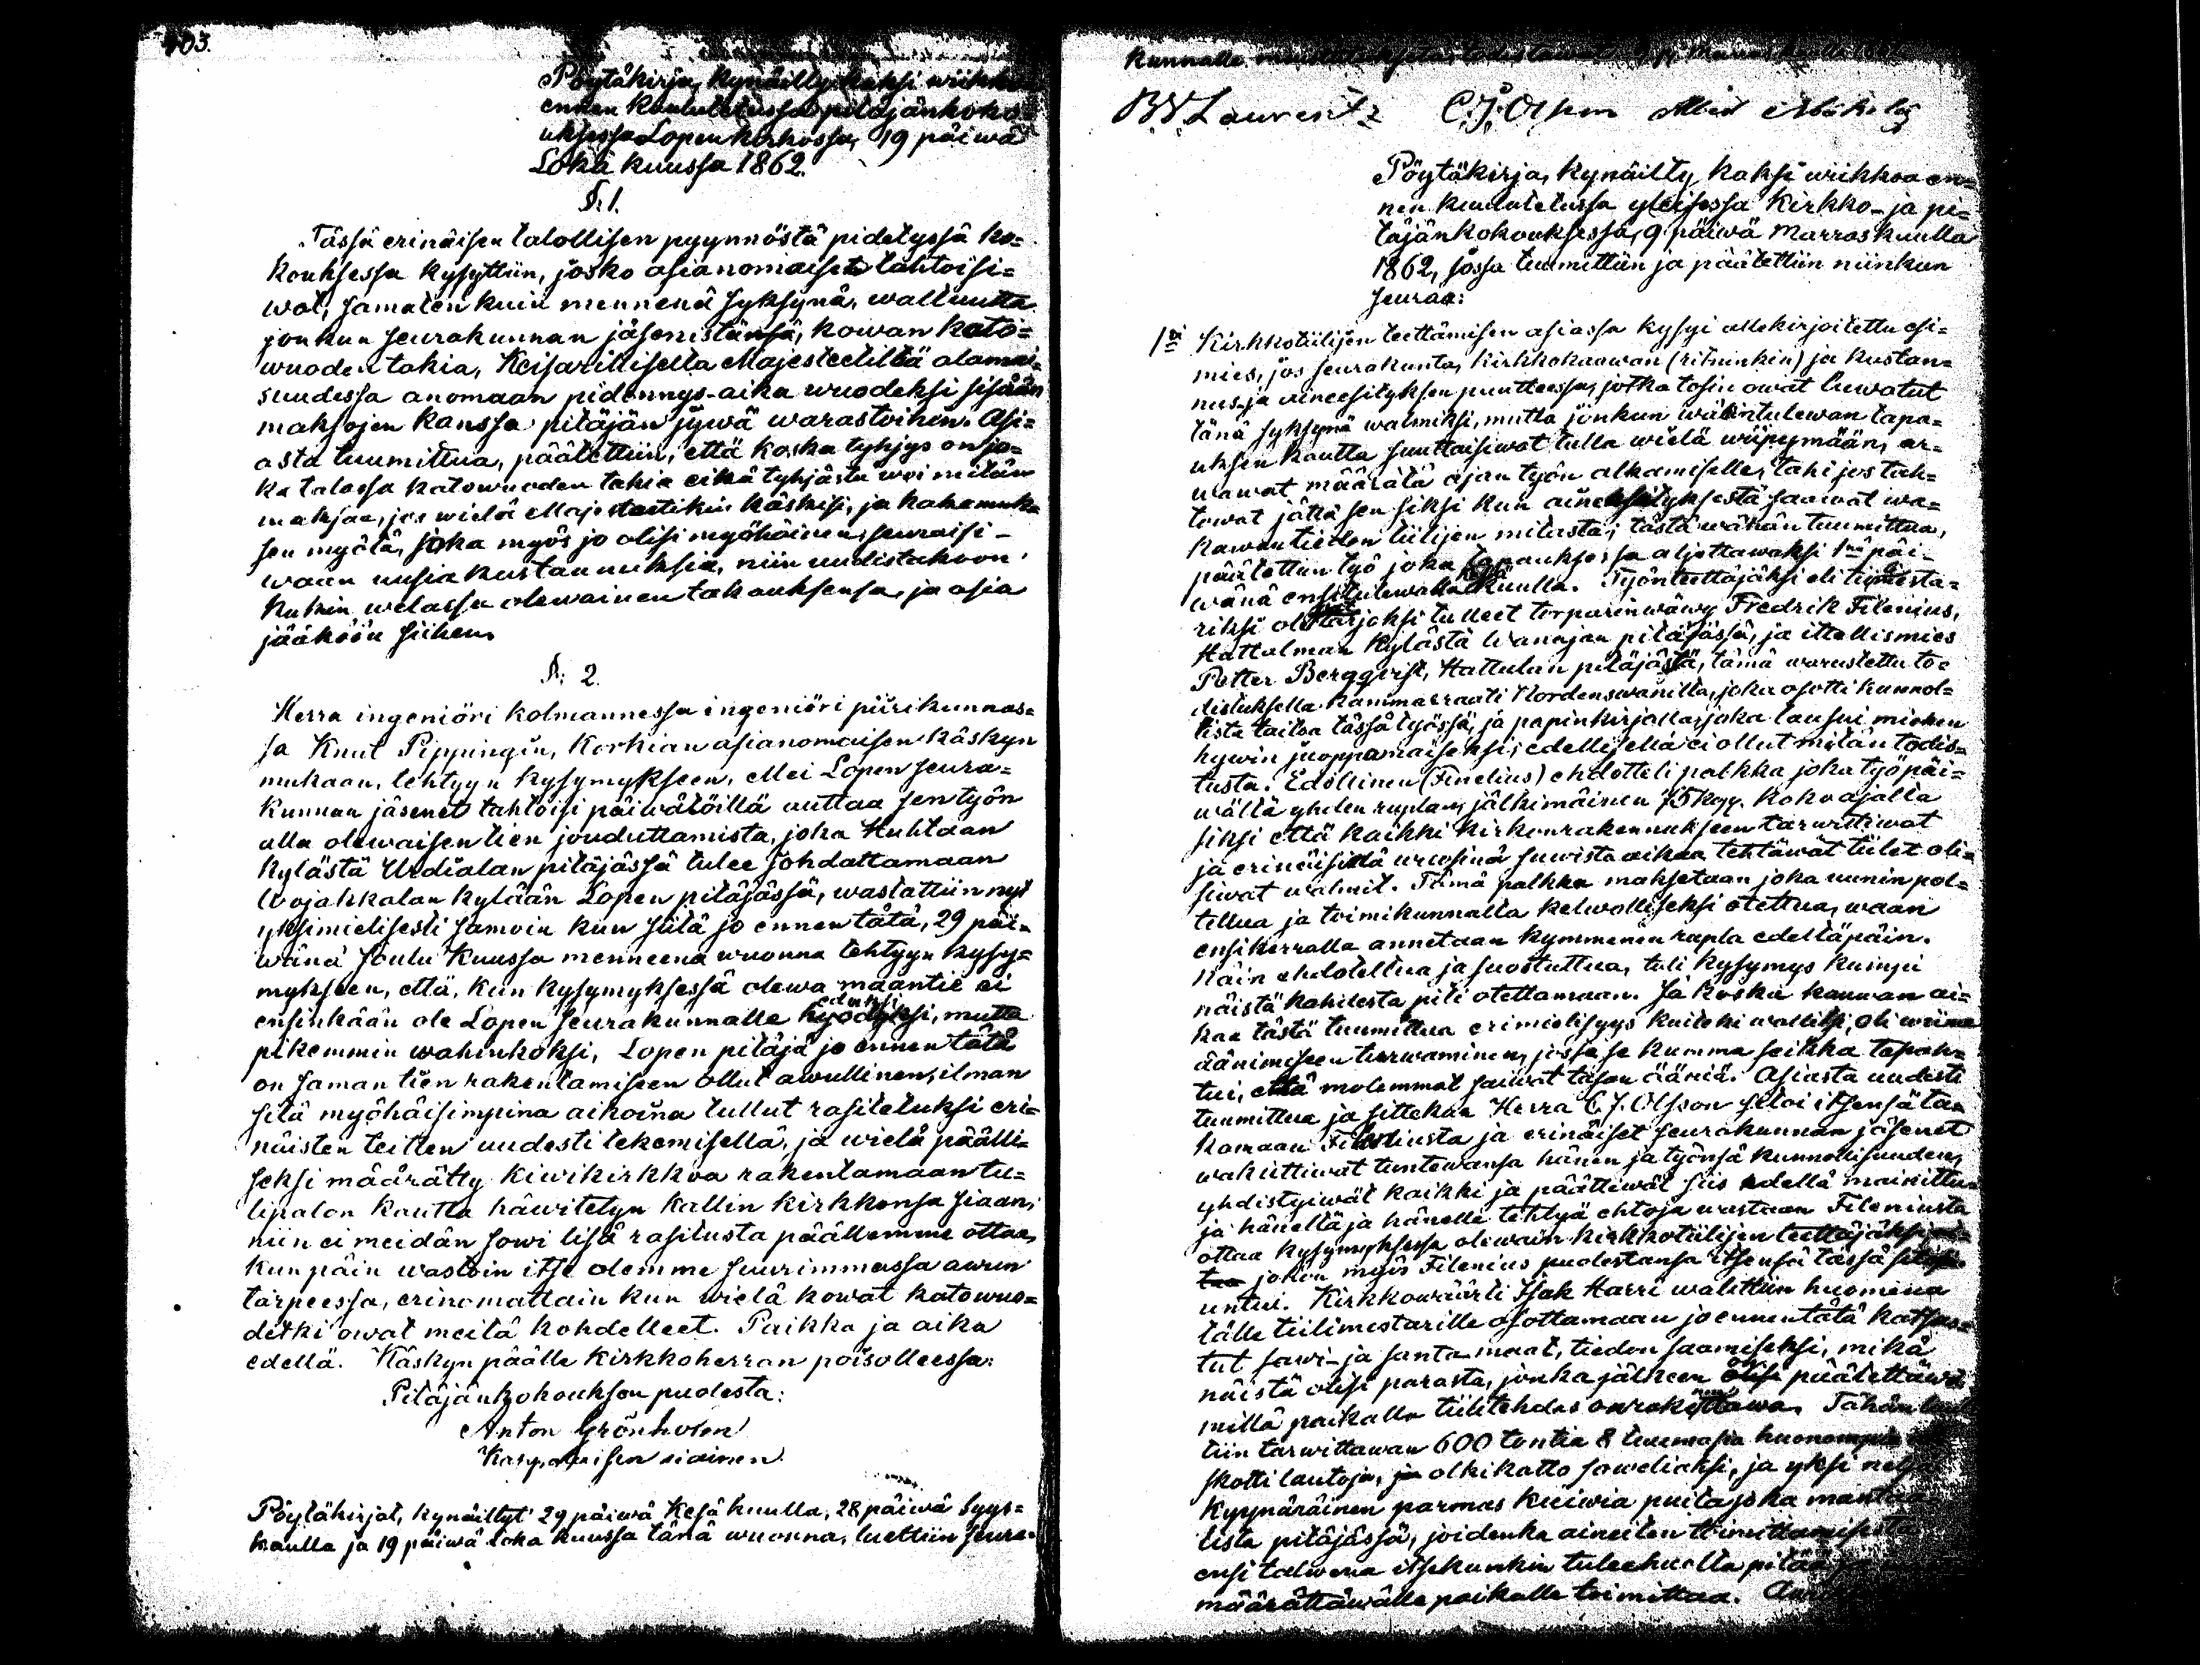 403.
Pöytäkirja, kynäilty kaksi wiikkoa
ennen kuulutetussa pitäjänkoko-
uksessa Lopen kirkossa, 19 päiwä
Loka kuussa 1862.
§: 1.
Tässä erinäisen talollisen pyynnöstä pidetyssä ko=
kouksessa kysyttiin, josko asianomaiset tahtoisi=
wat, samaten kuin mennenä syksynä, waltuutta
jonkun seurakunnan jäsenistänsä, kowan kato=
wuoden takia, Keisarillisella Majesteetiltä alamai=
suudessa anomaan pidennys-aika wuodeksi sisään
maksojen kanssa pitäjän jywä warastoihin. Asi=
asta tuumittua, päätettiin, että koska tyhjys on jo=
ka talossa katowuoden takia eikä tyhjästä woi mitän
maksaa, jos wielä Majesteetikin käskisi, ja hakemuk=
sen myötä, joka myös jo olisi myöhäinen, seuraisi-
waan uusia kustannuksia, niin uudistakoon
kukin welassa olewainen takauksensa, ja asia
jääköön siihen.
§: 2.
Herra ingeniöri kolmannessa ingeniöri piirikunnas=
sa Knut Pippingin, korkian asianomaisen käskyn
mukaan, tehtyyn kysymykseen, Mei Lopen seura=
kunnan jäsenet tahtoisi päiwätöillä auttaa sen työn
alla olewaisen tien jouduttamista, joka Huhtaan
kylästä Urdialan pitäjässä tulee johdattamaan
Wojakkalan kylään Lopen pitäjässä, wastattiin nyt
yksimielisesti samoin kun siitä jo ennen tätä, 29 päi=
wänä Joulu kuussa menneenä wuonna tehtyyn kysy=
mykseen, että, kun kysymyksessä olewa maantie ei
eduksi
ensinkään ole Lopen seurakunnalle hyödyksi, mutta
pikemmin wahinkoksi, Lopen pitäjä jo ennen tätä
on saman tien rakentamiseen ollut awullinen, ilman
sitä myöhäisimpina aikoina tullut rasitetuksi eri=
näisten teitten uudesti tekemisellä, ja wielä päälli=
seksi määrätty kiwikirkkoa rakentamaan tu=
lipalon kautta häwitetyn kallin kirkkonsa siaan,
niin ei meidän sowi lisä rasitusta päällemme ottaa,
kun päin wastoin itse olemme suurimmassa awun
tarpeessa, erinomattain kun wielä kowat katowuo=
detki owat meitä kohdelleet. Paikka ja aika
edellä. Käskyn päälle kirkkoherran poisolleessa:
Pitäjänkokouksen puolesta:
Anton Grönholm
Kapp.laisen siainen.
Pöytäkirjat, kynäillyt 29 päiwä Kesä kuulla, 28 päiwä Syys=
kuulla ja 19 päiwä Loka kuussa tänä wuonna, luettiin seura=
kunnalle
B. W. Laurentz C. J. Olsson
Pöytäkirja, kynäilty kaksi wiikkoa en=
nen kuulutetussa yleisessä kirkko- ja pi=
täjänkokouksessa, 9 päiwä Marraskuulla
1862, jossa tuumittiin ja päätettiin niinkun
seuraa:
1:ksi Kirkkotiilisen teettämisen asiassa kysyi allekirjoitettu esi=
mies, jos seurakunta, kirkkokaawan (ritninkin) ja kustan=
nus- ja aineesityksen puutteessa, jotka tosin owat luwatut
tänä syksynä walmiksi, mutta jonkun wälintulewan tapa=
uksen kautta suuttaisiwat tulla wielä wiipymään, ar=
wawat määrätä ajan työn alkamiselle, tahi jos tah=
towat jättä sen siksi kun ainesityksestä saawat wa=
kawan tiedon tiilijen mitasta; tästä wähän tuumittua,
päätettiin työ joka tapauksessa aljettawaksi 1:nä päi=
wänä ensitulewalla kuulla. Työnteettäjäksi eli tiilimesta=
riksi oliwat tarjoksi tulleet torparinwäwy Fredrik Filenius,
Hattalman kylästä Wanajan pitäjässä, ja itsellismies
Petter Bergqvist, Hattulan pitäjästä, tämä warustettu to=
distuksella Kammarraati Nordenswanilta, joka osotti kunnol=
lista taitoa tässä työssä, ja papinkirjalla, joka lausui miehen
hywin juoppamaiseksi; edellisellä ei ollut mitän todis=
tusta. Edellinen (Finelius) ehdotteli palkka joka työpäi=
wältä yhden ruplan, jälkimäinen 75 kop. koko ajalta
siksi että kaikki kirkonrakennukseen tarwittawat
ja erinäisillä wuosina suwista aikaa tehtäwät tiilet oli=
siwat walmit. Tämä palkka maksetaan joka uunin pol=
tettua ja toimikunnalta kelwolliseksi otettua, waan
ensikerralla annetaan kymmenen rupla edeltäpäin.
Näin ehdotettua ja suostuttua, tuli kysymys kumpi
näistä kahdesta piti otettamaan. Ja koska kauwan ai=
kaa tästä tuumittua erimielisyys kuitenki wallitsi, oli wiimen
äänimiseen turwaminen, jossa se kumma seikka tapah=
tui, että molemmat saiwat tasan ääniä. Asiasta uudesti
tuumittua ja sittekun Herra C. J. Olsson sitoi itsensä ta=
kamaan Fileniusta ja erinäiset seurakunnan jäsenet
wakuttiwat tuntewansa hänen ja työnsä kunnollisuuden,
yhdistyiwät kaikki ja päättiwät siis edellä mainittu=
ja häneltä ja hänelle tehtyä ehtoja wastaan Fileniusta
ottaa kysymyksessä olewain kirkkotiilijen teettäjäksi
johon myös Filenius puolestansa itsensä tässä
untui. Kirkkowäärti Isak Harri walittiin huomena
tälle tiilimestarille osottamaan jo ennen tätä katsas=
tut sawi- ja santa maat, tiedon saamiseksi, mikä
näistä olisi parasta, jonka jälkeen on päätettäwä
millä paikalla tiilitehdas on rakettawa. Tähän
tiin tarwittawan 600 tontia 8 tuumasia huonompia
skotti lautoja, ja olkikatto saweliaksi, ja yksi neljä
kyynäräinen parmas kuiwia puita joka manttaa=
lista pitäjässä, joidenka aineitten toimittamisesta
ensi talwena itsekunkin tulee huolta pitää
määrättäwälle paikalle toimittaa.